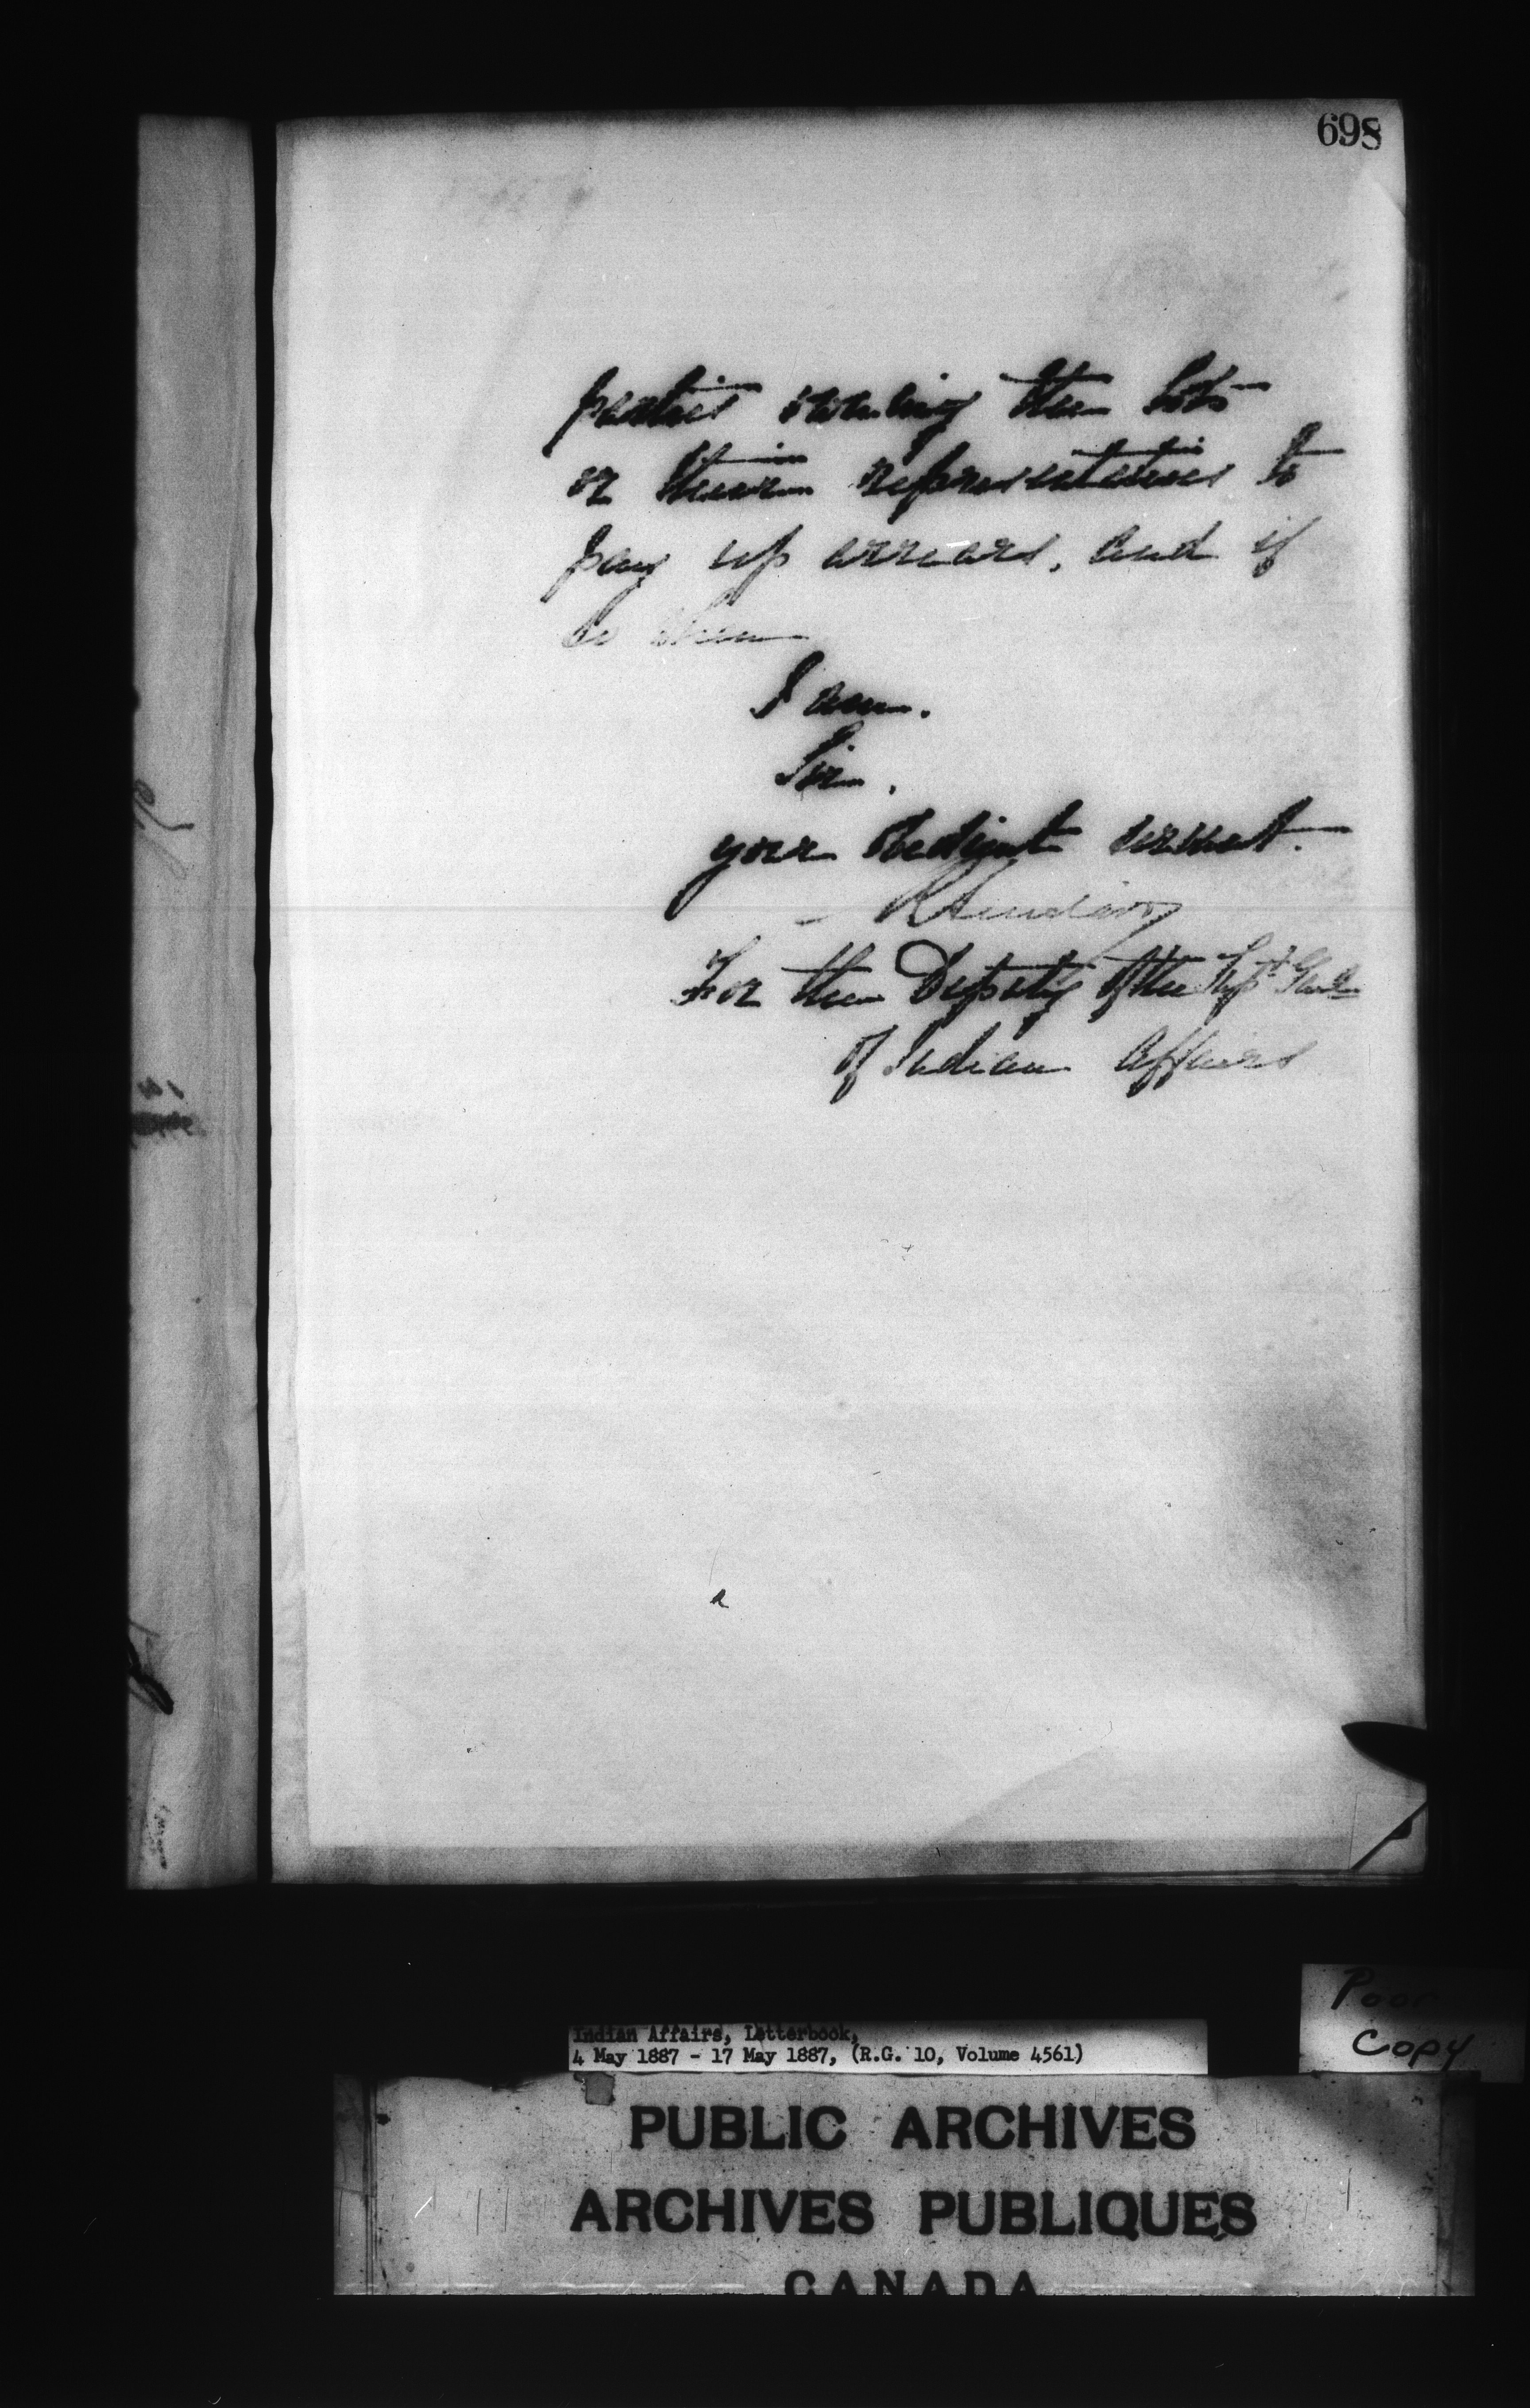 698
parties owning the lots
or their representatives to
pay up arrears, and if
so when
I am.
Sir,
your obedient servant.
For the Deputy of the Supt Genl
of Indian Affairs
Poor
Copy
Indian Affairs, Letterbook,
4 May 1887 - 17 May 1887, (R.G. 10, Volume 4561)
PUBLIC ARCHIVES
ARCHIVES PUBLIQUES
CANADA